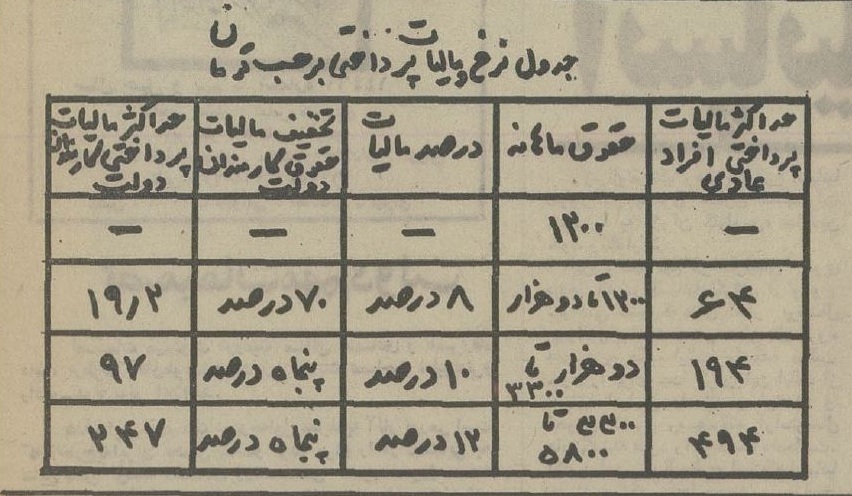 جدول نرخ مالیات پرداختی برحسب تومان
حداکثر مالیات پرداختی افراد عادی | حقوق ماهانه | درصد مالیات | تخفیف مالیات حقوق کارمندان دولت | حداکثر مالیات پرداختی کارمندان دولت
— | ۱۲۰۰ | — | — | —
۶۴ | ۱۲۰۰ تا دو هزار | ۸ درصد | ۷۰ درصد | ۱۹/۲
۱۹۴ | دو هزار تا ۳۳۰۰ | ۱۰ درصد | پنجاه درصد | ۹۷
۴۹۴ | ۳۳۰۰ تا ۵۸۰۰ | ۱۲ درصد | پنجاه درصد | ۲۴۷